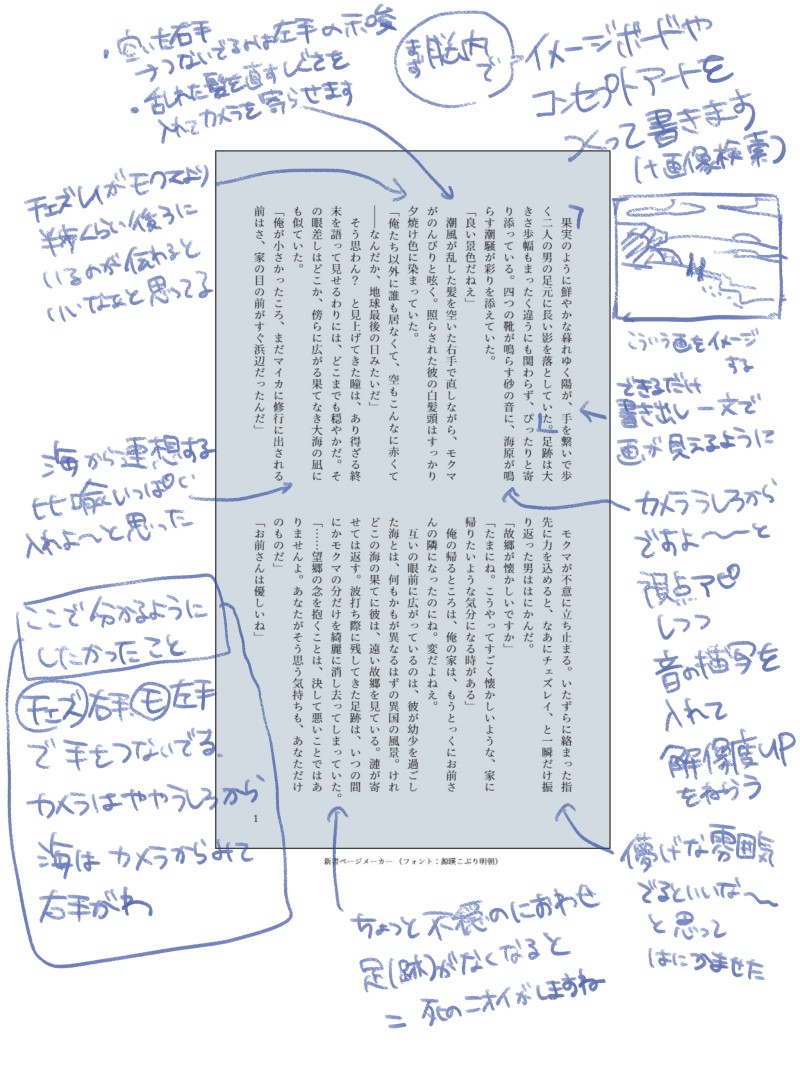 まず脳内で
イメージボードや
コンセプトアートを
つくって書きます
(+画像検索)
こういう画をイメージ
する
できるだけ
書き出し一文で
画が見えるように
カメラうしろから
ですよ〜〜と
視点アピ
しつつ
音の描写を
入れて
解像度UP
をねらう
儚げな雰囲気
でるといいな〜
と思って
はにかませた
・空いた右手
→つないでるのは左手の示唆
・乱れた髪を直すしぐさを
入れてカメラを寄らせます
チェズレイがモクマより
半歩くらい後ろに
いるのが伝わると
いいなぁと思ってる
海から連想する
比喩いっぱい
入れよ〜と思った
ここで分かるように
したかったこと
チェズ右手モ左手
で手をつないでる
カメラはややうしろから
海はカメラからみて
右手がわ
ちょっと不穏のにおわせ
足(跡)がなくなると
=死のニオイがしますね
果実のように鮮やかな暮れゆく陽が、手を繋いで歩
く二人の男の足元に長い影を落としていた。足跡は大
きさ歩幅もまったく違うにも関わらず、ぴったりと寄
り添っている。四つの靴が鳴らす砂の音に、海原が鳴
らす潮騒が彩りを添えていた。
「良い景色だねえ」
潮風が乱した髪を空いた右手で直しながら、モクマ
がのんびりと呟く。照らされた彼の白髪頭はすっかり
夕焼け色に染まっていた。
「俺たち以外に誰も居なくて、空もこんなに赤くて
――なんだか、地球最後の日みたいだ」
そう思わん? と見上げてきた瞳は、あり得ざる終
末を語って見せるわりには、どこまでも穏やかだ。そ
の眼差しはどこか、傍らに広がる果てなき大海の凪に
も似ていた。
「俺が小さかったころ、まだマイカに修行に出される
前はさ、家の目の前がすぐ浜辺だったんだ」
モクマが不意に立ち止まる。いたずらに絡まった指
先に力を込めると、なあにチェズレイ、と一瞬だけ振
り返った男ははにかんだ。
「故郷が懐かしいですか」
「たまにね。こうやってすごく懐かしいような、家に
帰りたいような気分になる時がある」
俺の帰るところは、俺の家は、もうとっくにお前さ
んの隣になったのにね。変だよねえ。
互いの眼前に広がっているのは、彼が幼少を過ごし
た海とは、何もかもが異なるはずの異国の風景。けれ
どこの海の果てに彼は、遠い故郷を見ている。漣が寄
せては返す。波打ち際に残してきた足跡は、いつの間
にかモクマの分だけを綺麗に消し去ってしまっていた。
「……望郷の念を抱くことは、決して悪いことではあ
りませんよ。あなたがそう思う気持ちも、あなただけ
のものだ」
「お前さんは優しいね」
1
新書ページメーカー(フォント:源暎こぶり明朝)